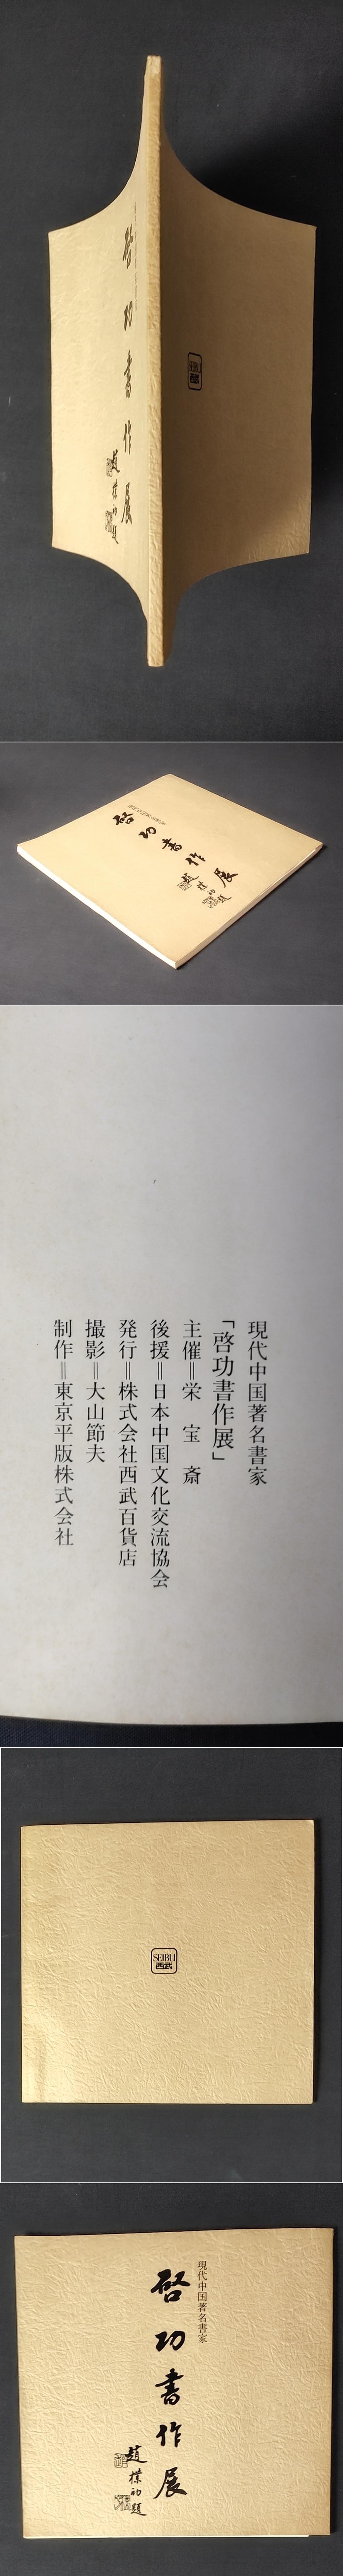 啓功書作展
趙樸初題
現代中国著名書家
啓功書作展
趙樸初題
現代中国著名書家
「啓功書作展」
主催＝栄　宝　斎
後援＝日本中国文化交流協会
発行＝株式会社西武百貨店
撮影＝大山節夫
制作＝東京平版株式会社
SEIBU
西武
現代中国著名書家
啓功書作展
趙樸初題